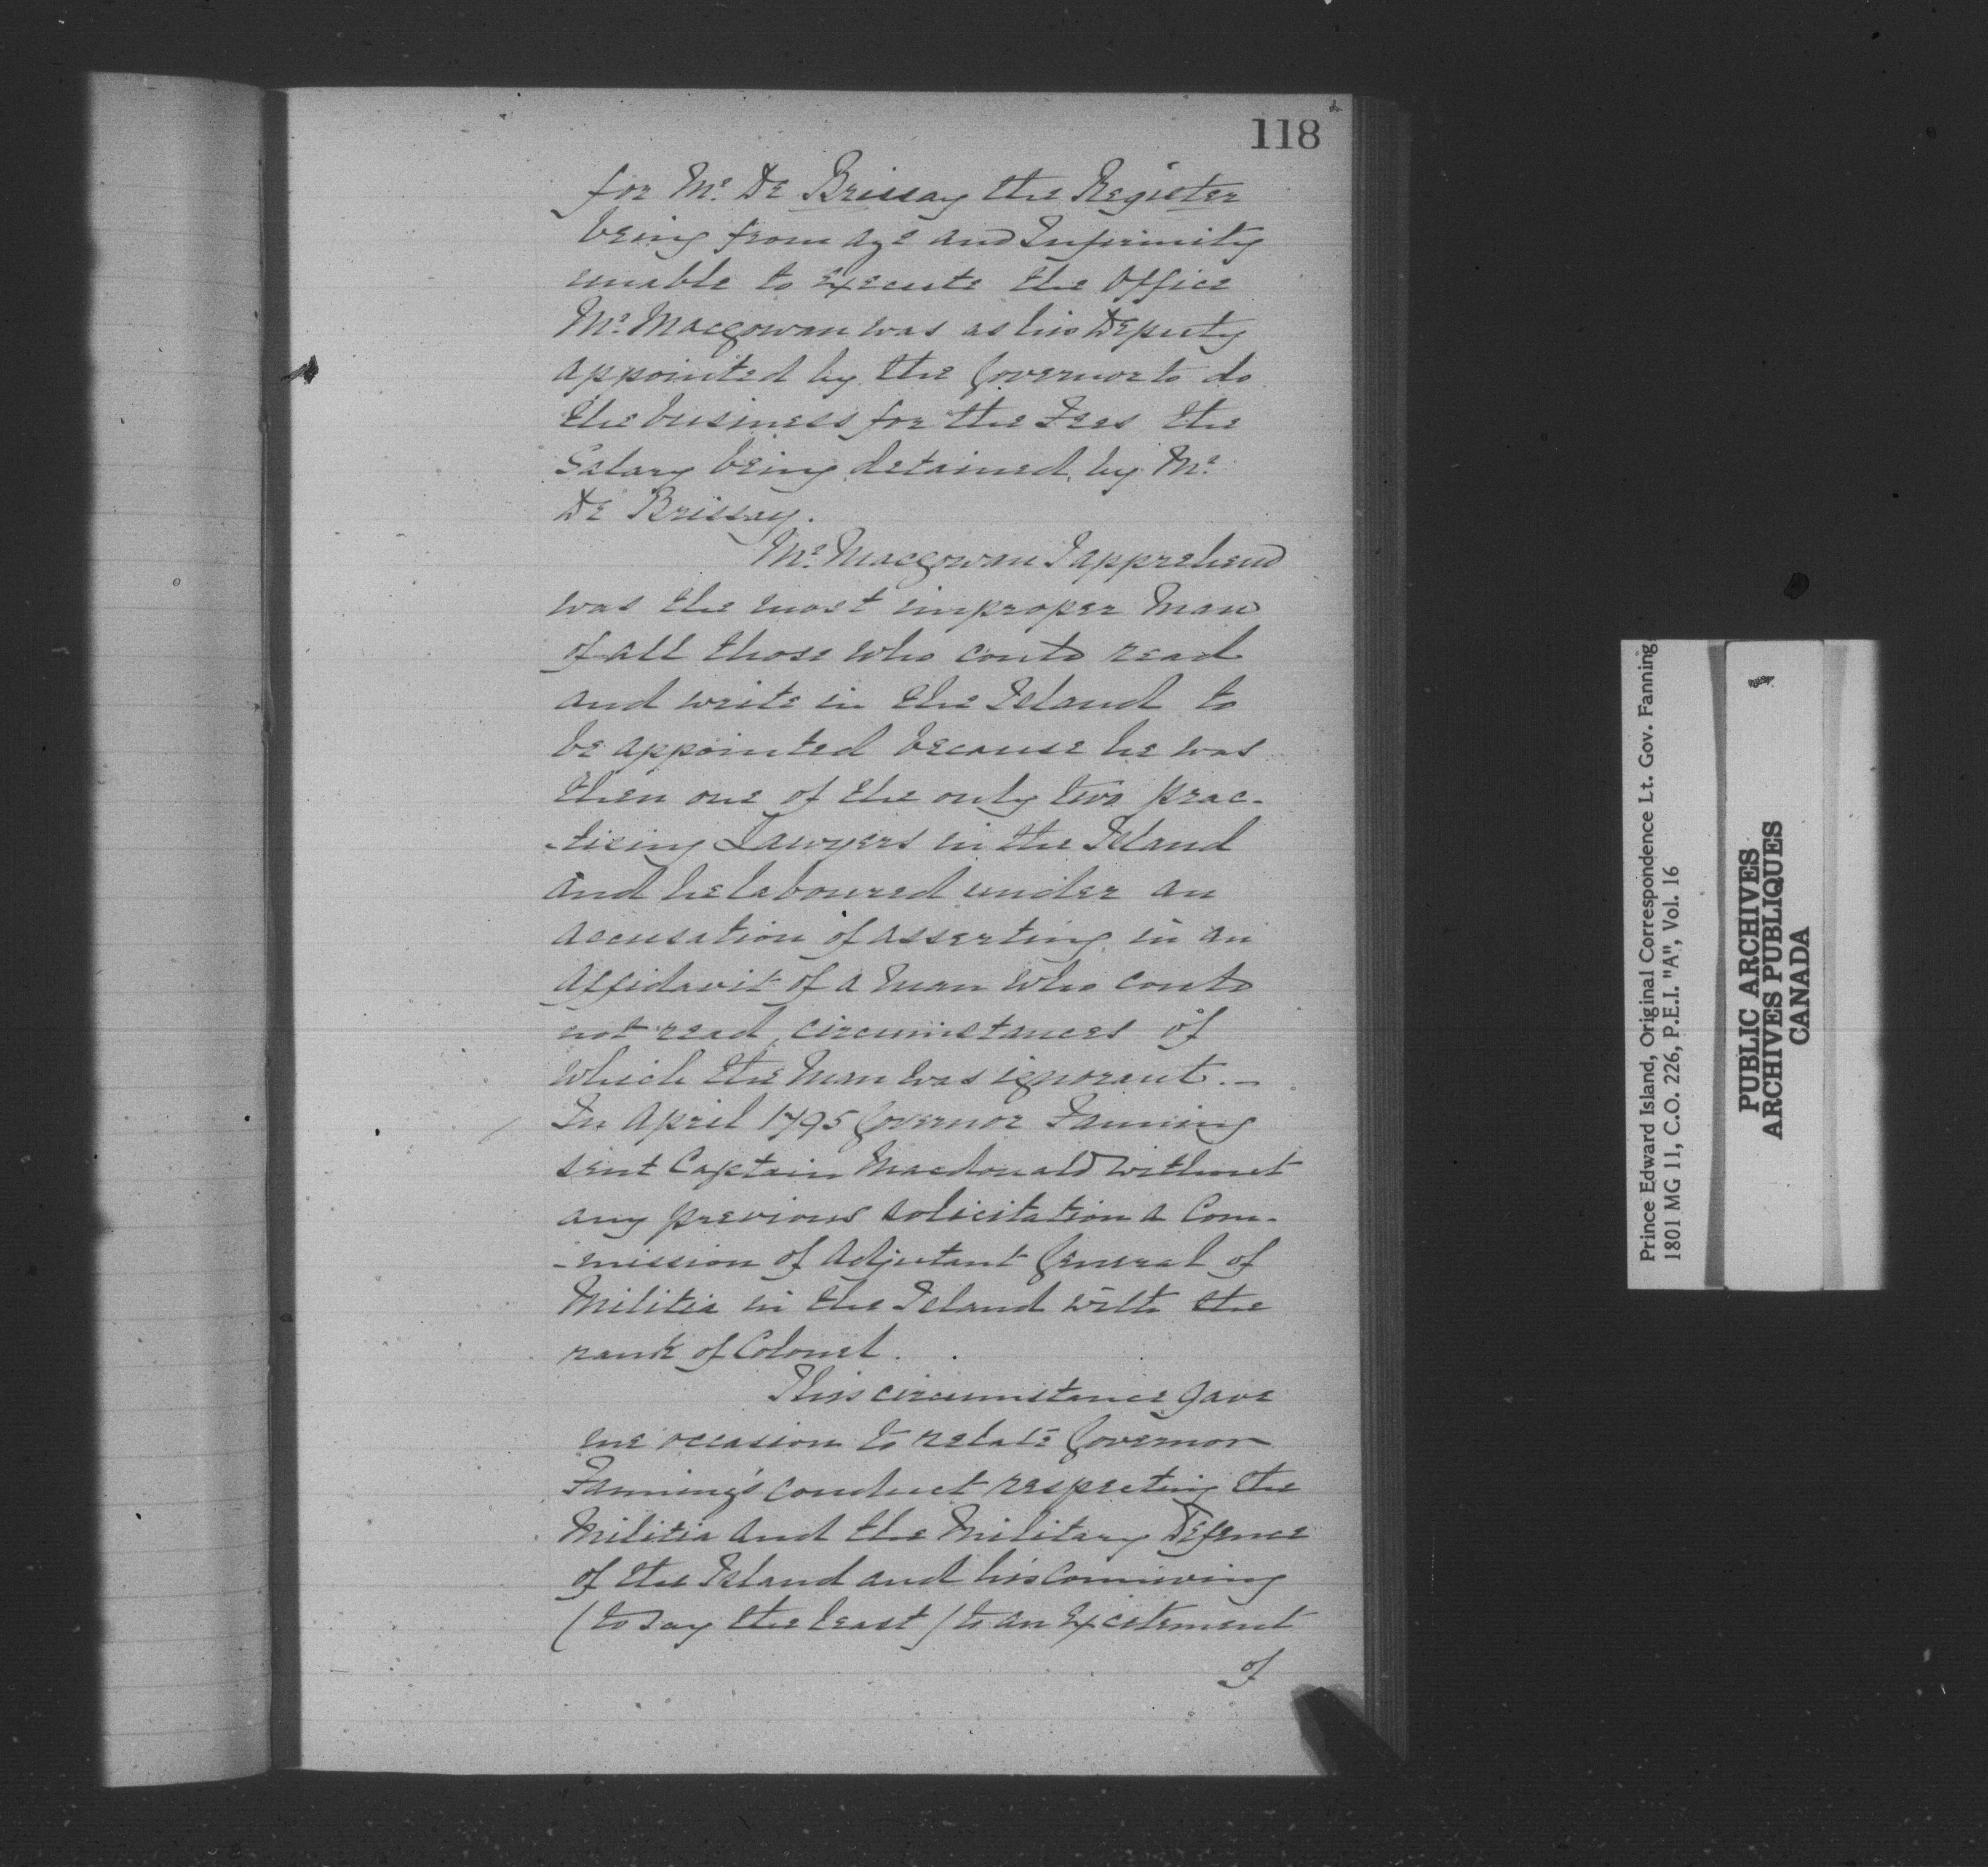 118
for Mr. De Brissay the Register
being from age and Infirmity
unable to Execute the Office
Mr. Macgowan was as his Deputy
appointed by the Governor to do
the business for the Fees the
Salary being detained by Mr.
De Brissay.
Mr. Macgowan I apprehend
was the most improper Man
of all those who could read
and write in the Island to
be appointed because he was
then one of the only two prac-
-ticing Lawyers in the Island
and he laboured under an
accusation of asserting in an
Affidavit of a Man who could
not read, circumstances of
which the Man was ignorant. -
In April 1795 Governor Fanning
sent Captain Macdonald without
any previous solicitation a Com-
-mission of Adjutant General of
Militia in the Island with the
rank of Colonel.
This circumstance gave
me occasion to relate Governor
Fanning's conduct respecting the
Militia and the Military Defence
of the Island and his Conniving
(to say the least) to an Excitement
of
Prince Edward Island, Original Correspondence Lt. Gov. Fanning
1801 MG 11, C.O. 226, P.E.I. "A", Vol. 16
PUBLIC ARCHIVES
ARCHIVES PUBLIQUES
CANADA